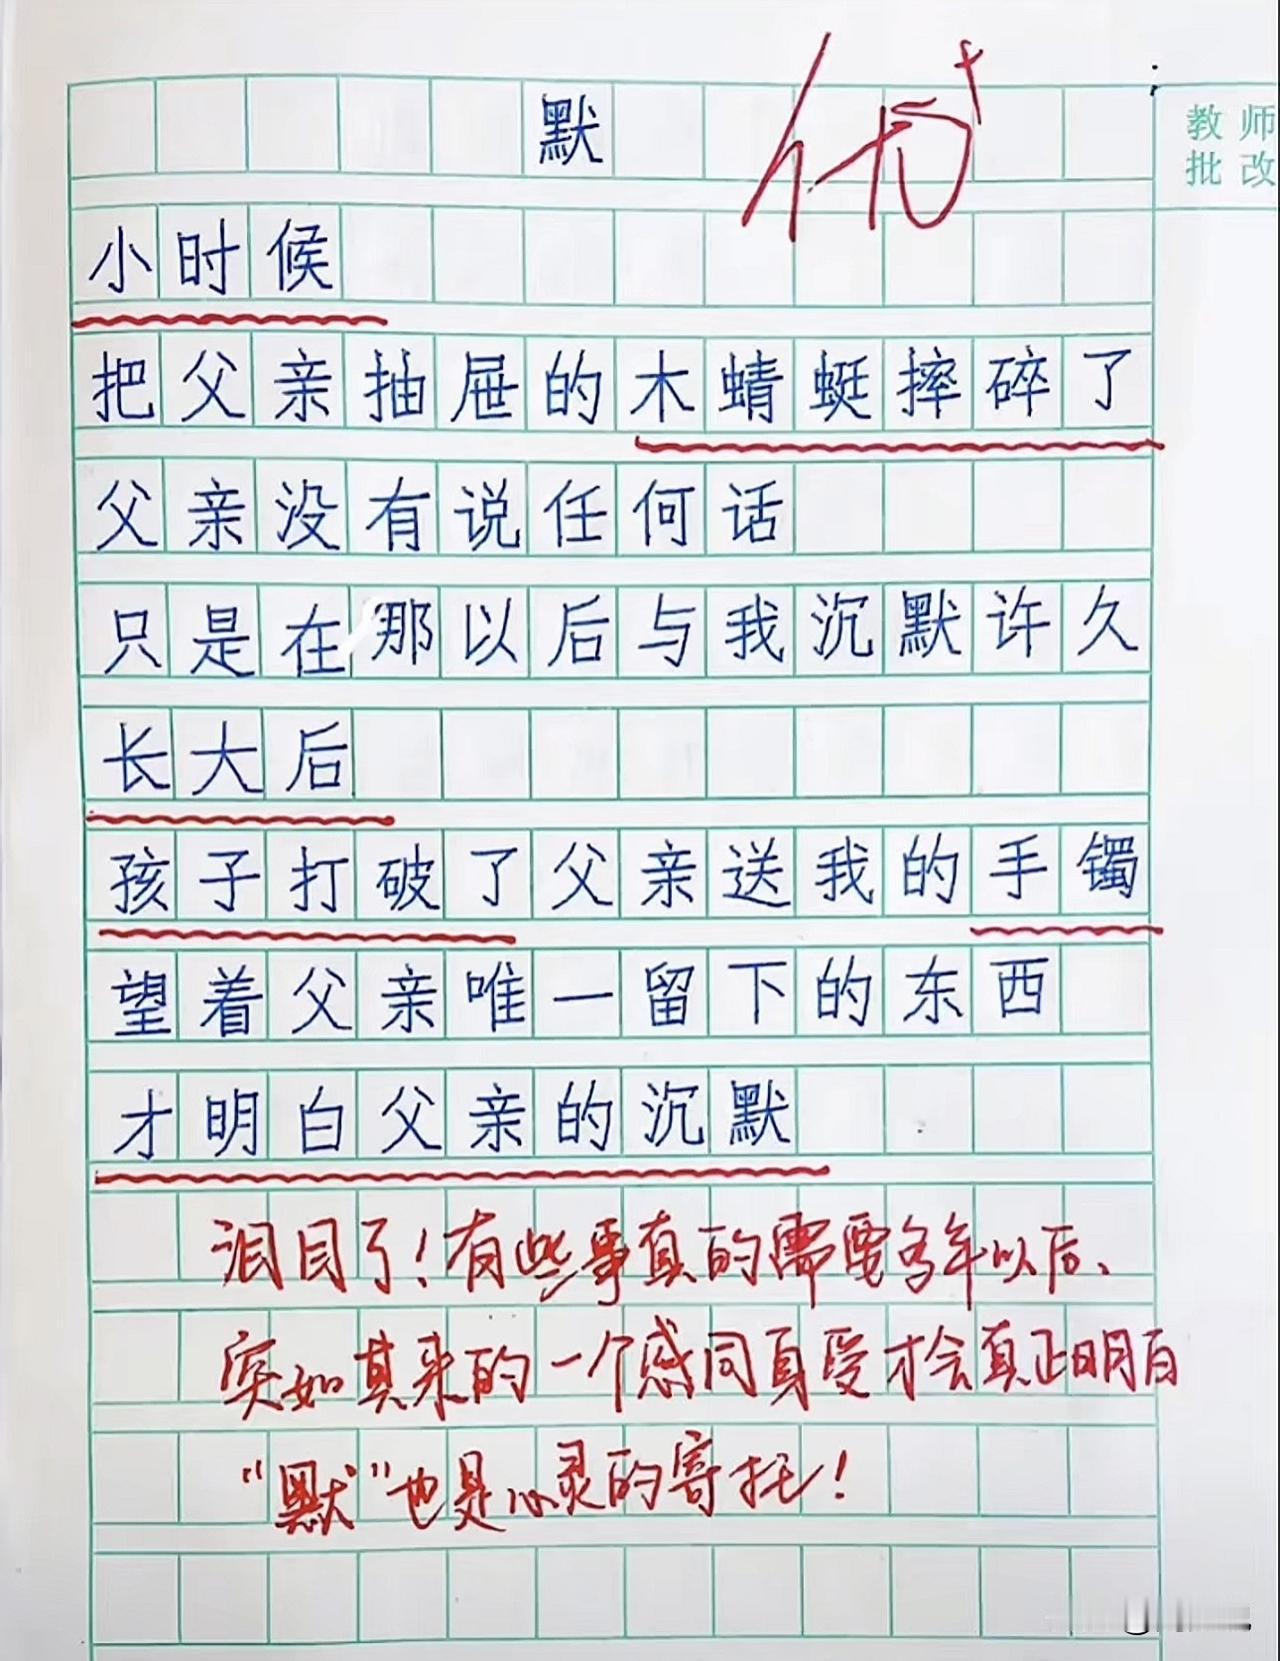 默
优+
教师
批改
小时候
把父亲抽屉的木蜻蜓摔碎了
父亲没有说任何话
只是在那以后与我沉默许久
长大后
孩子打破了父亲送我的手镯
望着父亲唯一留下的东西
才明白父亲的沉默
泪目了！有些事真的需要多年以后、
突如其来的一个感同身受才会真正明白
“默”也是心灵的寄托！